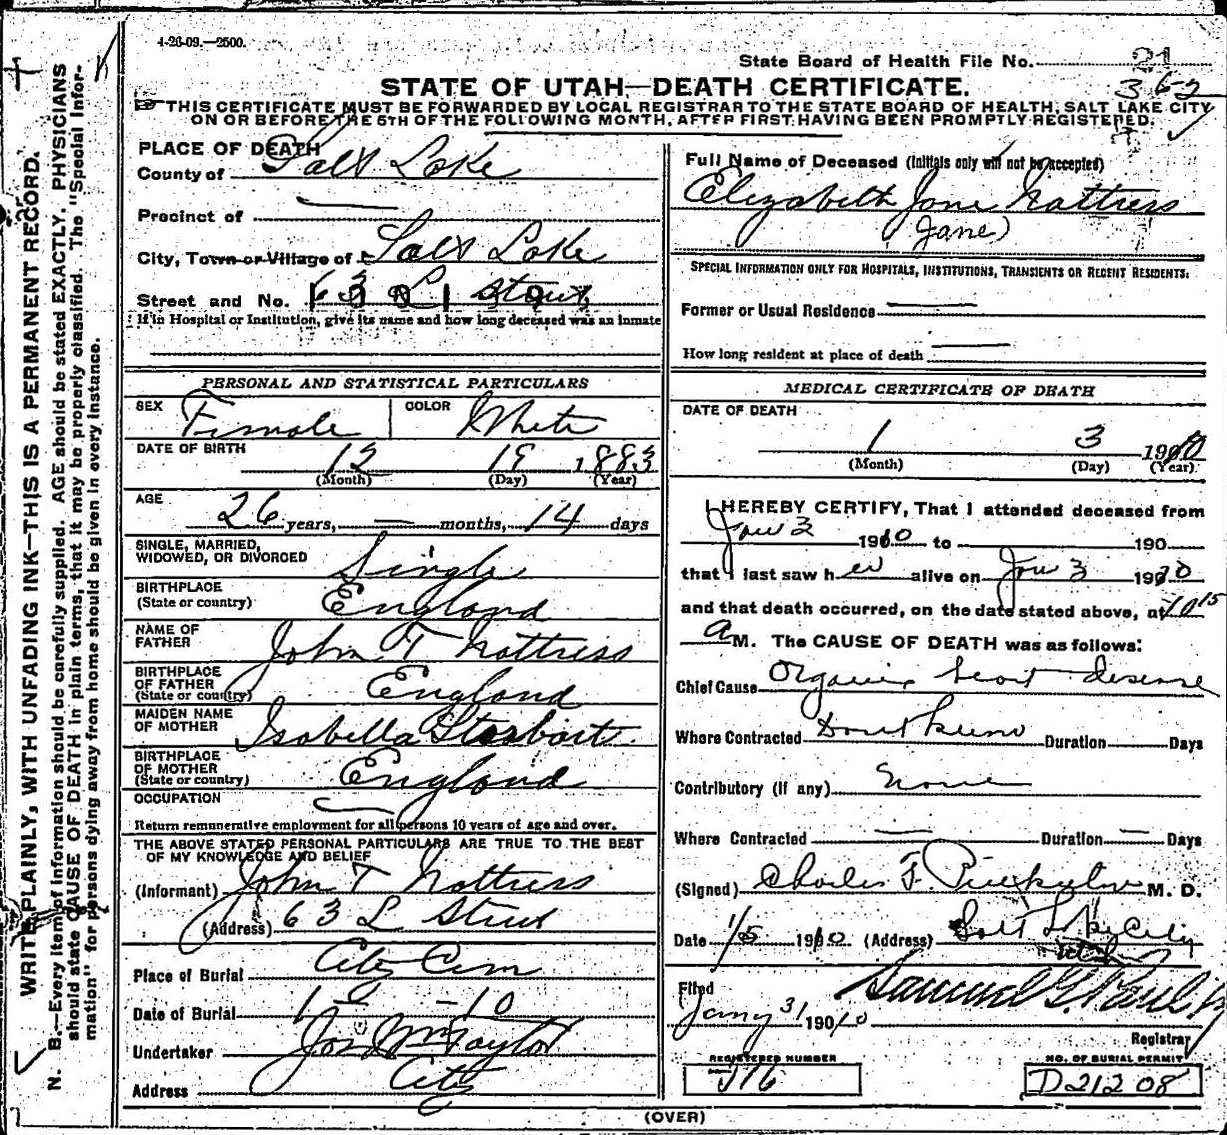 4-26-09.—2500.
State Board of Health File No. 21
362
STATE OF UTAH—DEATH CERTIFICATE.
THIS CERTIFICATE MUST BE FORWARDED BY LOCAL REGISTRAR TO THE STATE BOARD OF HEALTH, SALT LAKE CITY
ON OR BEFORE THE 5TH OF THE FOLLOWING MONTH, AFTER FIRST HAVING BEEN PROMPTLY REGISTERED.
WRITE PLAINLY, WITH UNFADING INK—THIS IS A PERMANENT RECORD.
N. B.—Every item of information should be carefully supplied. AGE should be stated EXACTLY. PHYSICIANS
should state CAUSE OF DEATH in plain terms, that it may be properly classified. The "Special Infor-
mation" for persons dying away from home should be given in every instance.
PLACE OF DEATH
County of Salt Lake
Precinct of —
City, Town or Village of Salt Lake
Street and No. 63 L Street
If in Hospital or Institution, give its name and how long deceased was an inmate
PERSONAL AND STATISTICAL PARTICULARS
SEX Female COLOR White
DATE OF BIRTH 12 19 1883
(Month) (Day) (Year)
AGE 26 years, — months, 14 days
SINGLE, MARRIED,
WIDOWED, OR DIVORCED Single
BIRTHPLACE
(State or country) England
NAME OF
FATHER John T Nattress
BIRTHPLACE
OF FATHER
(State or country) England
MAIDEN NAME
OF MOTHER Isabella
BIRTHPLACE
OF MOTHER
(State or country) England
OCCUPATION —
Return remunerative employment for all persons 10 years of age and over.
THE ABOVE STATED PERSONAL PARTICULARS ARE TRUE TO THE BEST
OF MY KNOWLEDGE AND BELIEF
(Informant) John T Nattress
(Address) 63 L Street
Place of Burial City Cem
Date of Burial 1 - - 10
Undertaker Jos Wm Taylor
Address City
Full Name of Deceased (Initials only will not be accepted)
Elizabeth Jane Nattress
(Jane)
SPECIAL INFORMATION ONLY FOR HOSPITALS, INSTITUTIONS, TRANSIENTS OR RECENT RESIDENTS:
Former or Usual Residence —
How long resident at place of death —
MEDICAL CERTIFICATE OF DEATH
DATE OF DEATH
1 3 1910
(Month) (Day) (Year)
I HEREBY CERTIFY, That I attended deceased from
Jan 3 1910 to 190
that I last saw her alive on Jan 3 1910
and that death occurred, on the date stated above, at 10 15
A M. The CAUSE OF DEATH was as follows:
Chief Cause Organic heart disease
Where Contracted Dont know Duration Days
Contributory (if any) None
Where Contracted — Duration — Days
(Signed) Charles F. M. D.
Date 1/5 1910 (Address) Salt Lake City
Utah
Filed
Jany 31 1910 Samuel G. Paul
Registrar
REGISTERED NUMBER
J16
NO. OF BURIAL PERMIT
D21208
(OVER)